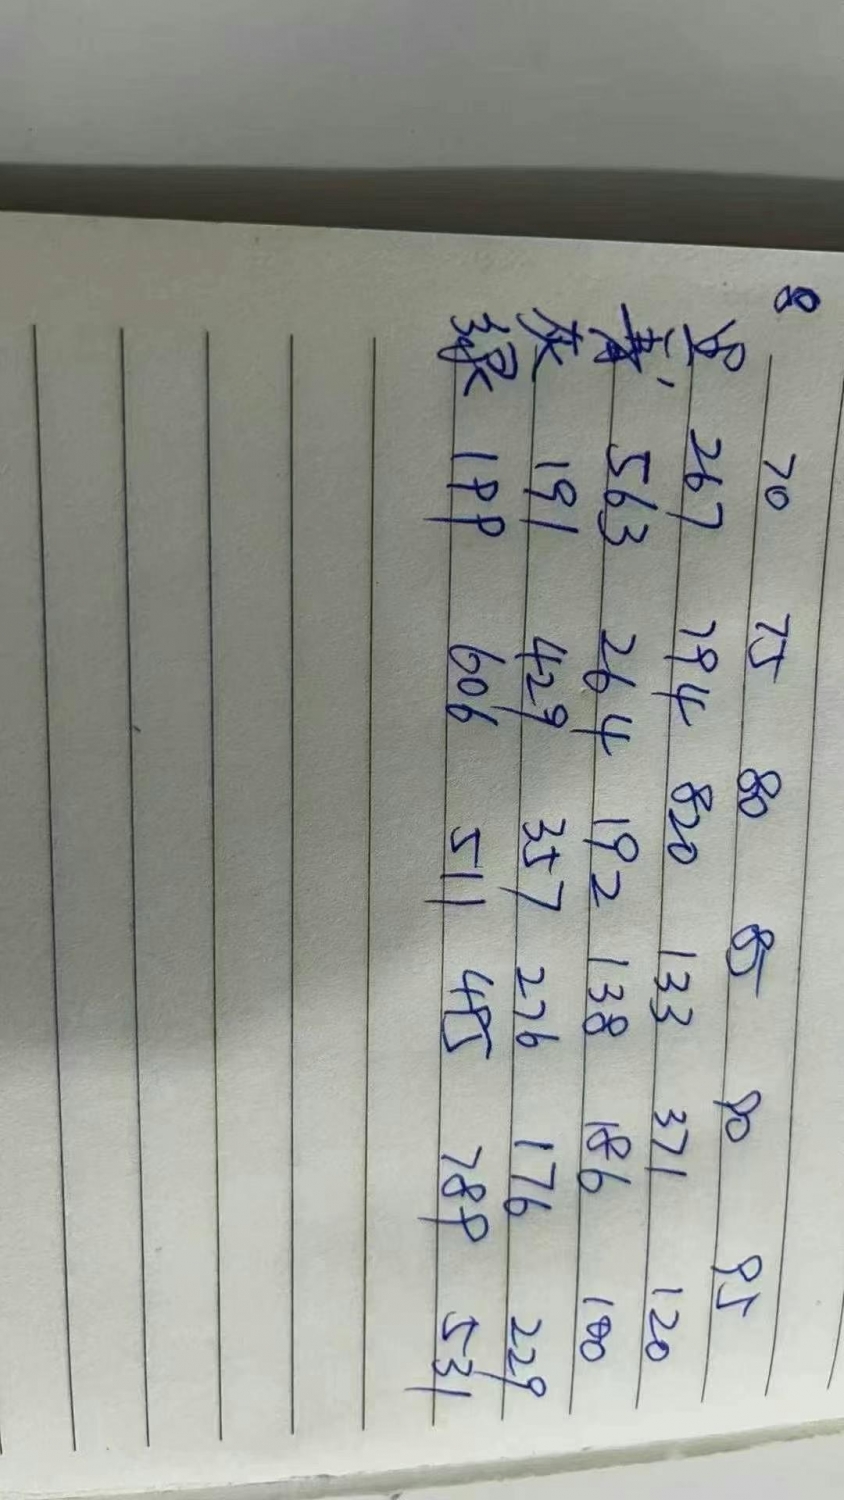 8
70 75 80 85 90 95
267 794 820 133 371 120
563 264 192 138 186 100
灰 191 429 357 276 176 229
绿 199 606 511 789 531